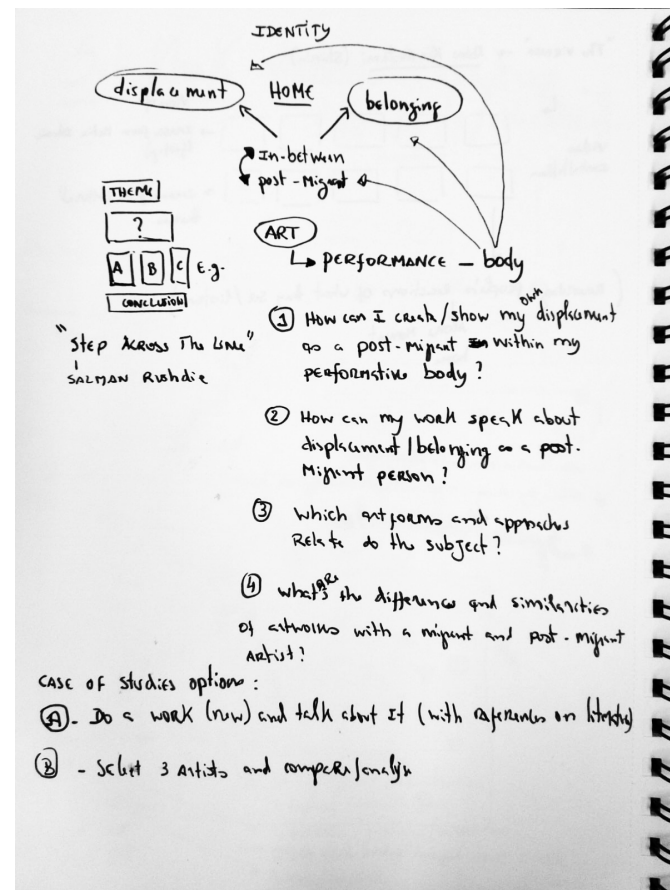 IDENTITY
displacement
HOME
belonging
In-between
post-Migrant
THEME
?
A B C E.g.
CONCLUSION
ART
PERFORMANCE - body
"STEP ACROSS THE LINE"
SALMAN Rushdie
① How can I create/show my own displacement
as a post-migrant within my
performative body?
② How can my work speak about
displacement/belonging as a post-
Migrant person?
③ Which artforms and approaches
Relate do the subject?
④ what's ARE the difference and similarities
of artworks with a migrant and post-migrant
Artist?
CASE OF Studies options:
Ⓐ - Do a work (new) and talk about It (with references on literature)
Ⓑ - Select 3 Artists and compare/analyse